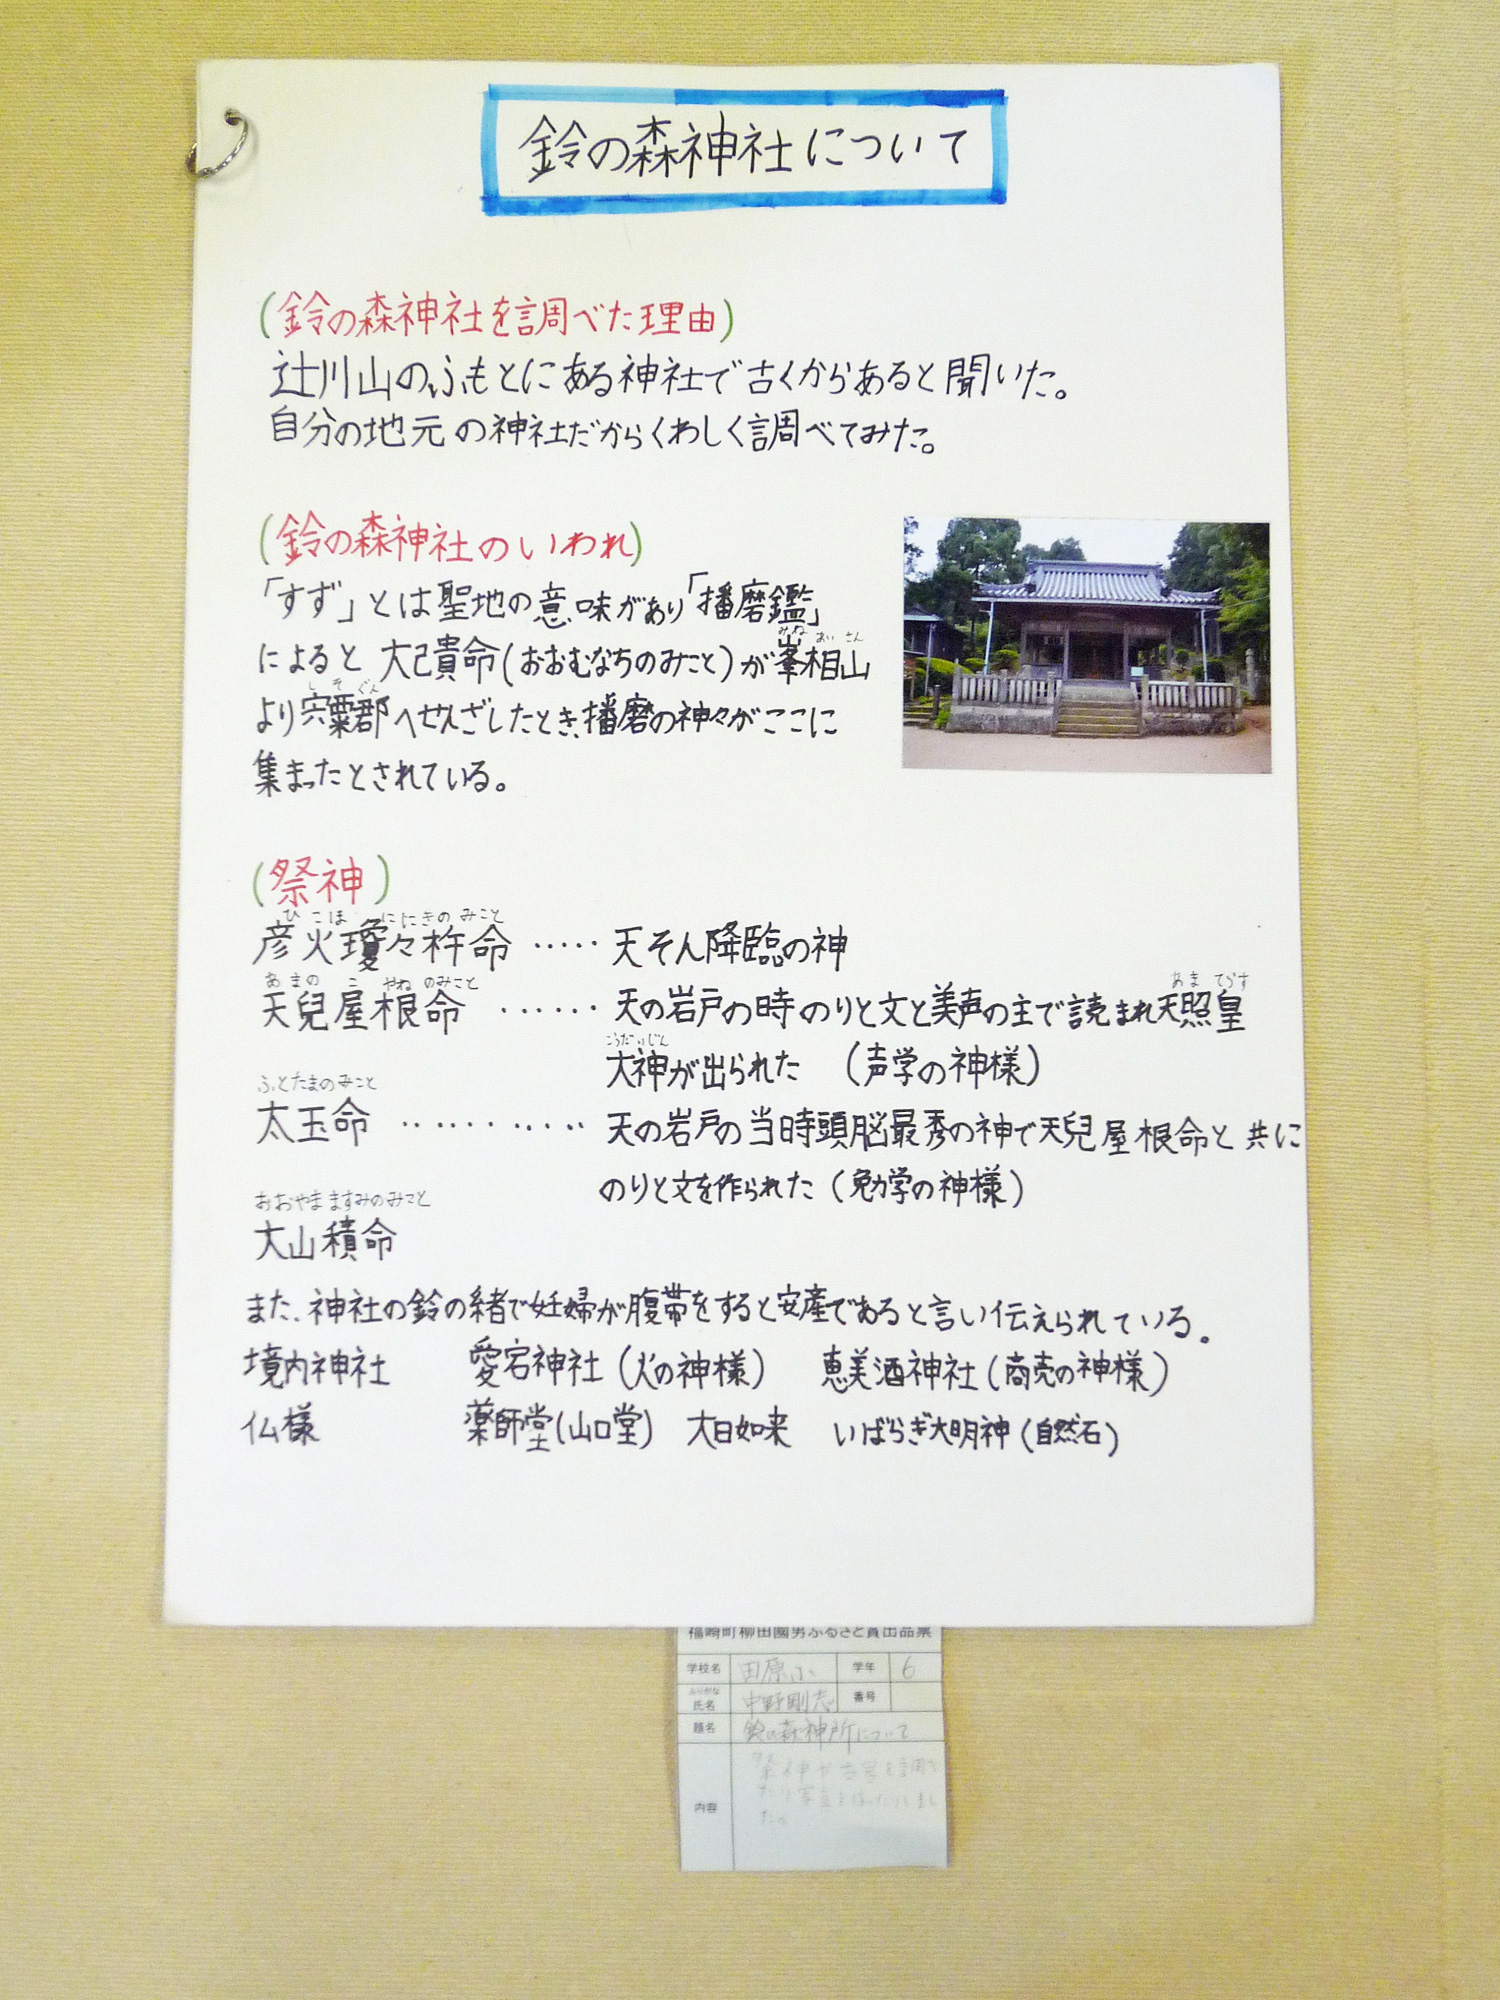 鈴の森神社について
(鈴の森神社を調べた理由)
辻川山のふもとにある神社で古くからあると聞いた。
自分の地元の神社だからくわしく調べてみた。
(鈴の森神社のいわれ)
「すず」とは聖地の意味があり「播磨鑑」
みね あい さん
によると大己貴命(おおむなちのみこと)が峯相山
しそぐん
より宍粟郡へせんざしたとき、播磨の神々がここに
集まったとされている。
(祭神)
ひこほ ににぎのみこと
彦火瓊々杵命 ····· 天そん降臨の神
あまの こ やね のみこと あま てらす
天兒屋根命 ······ 天の岩戸の時のりと文と美声の主で読まれ天照皇
こうだいじん
大神が出られた (声学の神様)
ふとたまのみこと
太玉命 ·········· 天の岩戸の当時頭脳最秀の神で天兒屋根命と共に
のりと文を作られた(勉学の神様)
おおやまますみのみこと
大山積命
また、神社の鈴の緒で妊婦が腹帯をすると安産であると言い伝えられている。
境内神社 愛宕神社(火の神様) 恵美酒神社(商売の神様)
仏様 薬師堂(山口堂) 大日如来 いばらぎ大明神(自然石)
福崎町柳田國男ふるさと賞出品票
学校名 田原小 学年 6
ふりがな
氏名 中野剛志 番号
題名 鈴の森神所について
内容 祭神や
たり写真をはったりしまし
た。